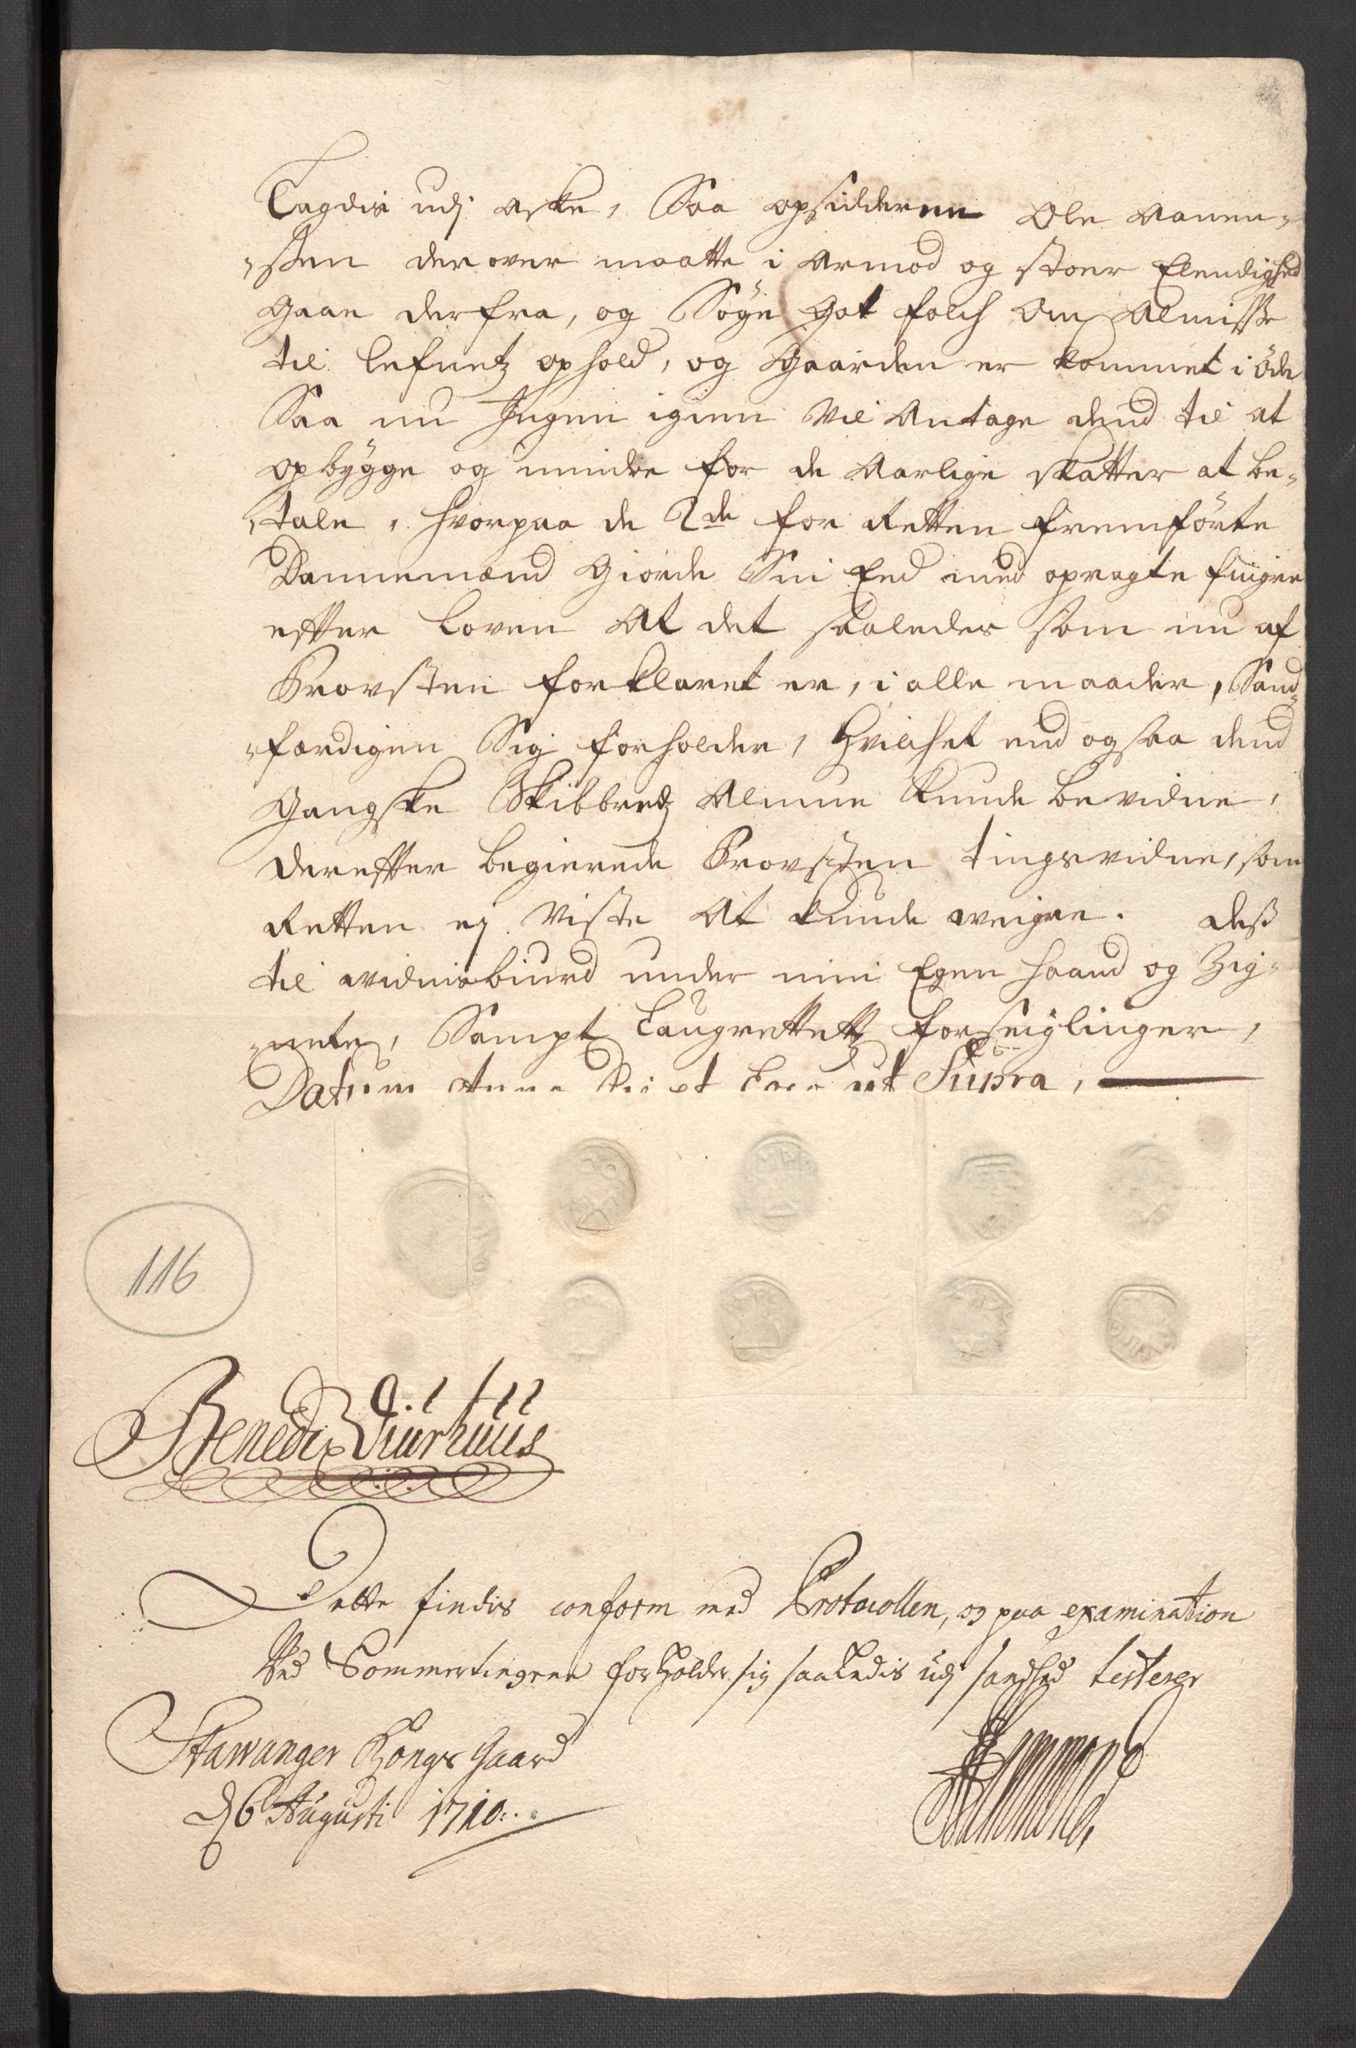 Lagdis udj aske, Saa opsidderen Ole Aanen-
-ssen derover maatte i armod og stoer Elendighed
gaae derfra, og Søge got folch om Almisse
til lefnetz ophold, og gaarden er kommet i øde
Saa nu Ingen igien vil antage dend til at
opbygge og mindre for de Aarlige skatter at be-
tale, hvorpaa de 2de for Retten fremførte
Dannemænd giorde Sin Eed med opragte fingre
effter Loven at det saaledes som nu af
Provsten forklaret er, i alle maader, Sand-
-færdigen Sig forholder, hvilchet end og saa dend
gangske Skibbredz Almue kunde bevidne,
dereffter begierede Provsten tingsvidne, som
Retten ej viste at kunde weigre. Dess
til widnisbiurd under min Egen haand og Zig-
-nete, Sampt Laugrettetz forseiglinger,
Datum Anno Die et Loco ut Supra,
116
Benedix Diurhuus
Dette findis conform med Protocollen, og paa examination
Ved Sommertingene forholder sig saaledis udj sandhed testerer
Stawanger Kongs Gaard
d 6 Augusti 1710.